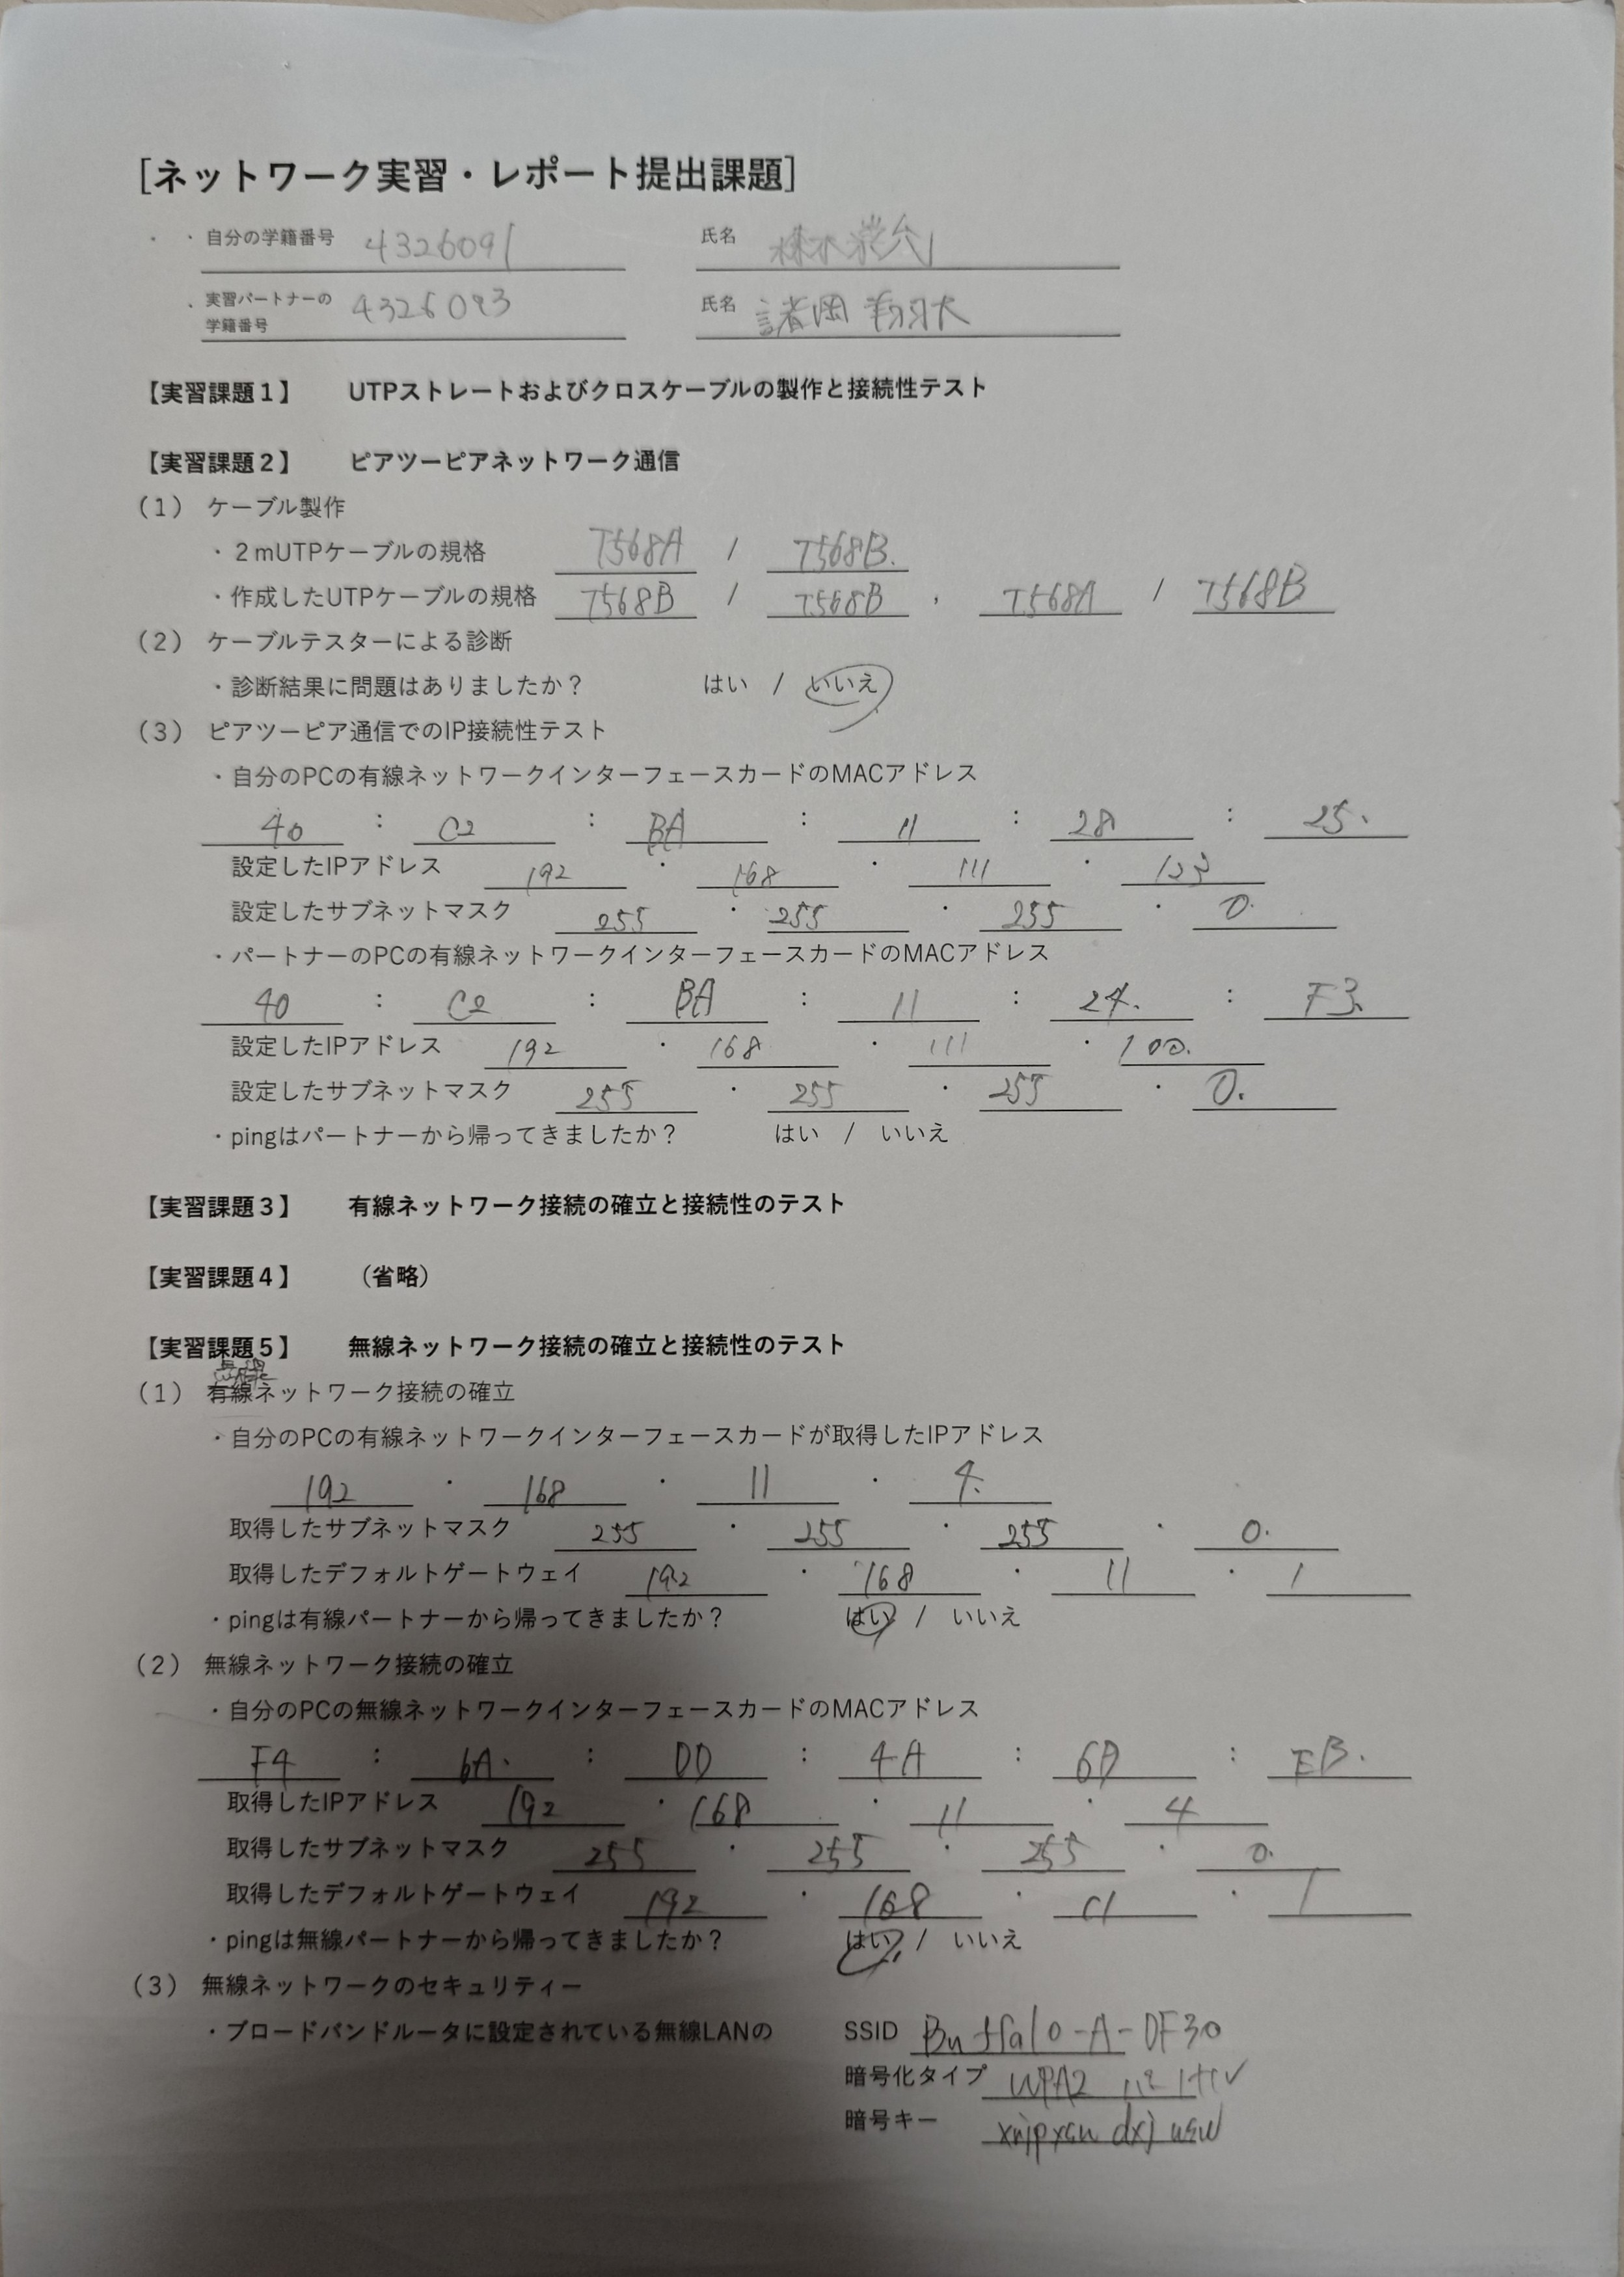 [ネットワーク実習・レポート提出課題]
・自分の学籍番号 4326091 氏名
・実習パートナーの学籍番号 4326093 氏名 諸岡 翔大
【実習課題1】 UTPストレートおよびクロスケーブルの製作と接続性テスト
【実習課題2】 ピアツーピアネットワーク通信
(1) ケーブル製作
・2mUTPケーブルの規格 T568A / T568B.
・作成したUTPケーブルの規格 T568B / T568B , T568A / T568B
(2) ケーブルテスターによる診断
・診断結果に問題はありましたか? はい / いいえ
(3) ピアツーピア通信でのIP接続性テスト
・自分のPCの有線ネットワークインターフェースカードのMACアドレス
40 : C2 : BA : 11 : 28 : 25.
設定したIPアドレス 192 . 168 . 111 . 123
設定したサブネットマスク 255 . 255 . 255 . 0.
・パートナーのPCの有線ネットワークインターフェースカードのMACアドレス
40 : C2 : BA : 11 : 24. : F3.
設定したIPアドレス 192 . 168 . 111 . 100.
設定したサブネットマスク 255 . 255 . 255 . 0.
・pingはパートナーから帰ってきましたか? はい / いいえ
【実習課題3】 有線ネットワーク接続の確立と接続性のテスト
【実習課題4】 (省略)
【実習課題5】 無線ネットワーク接続の確立と接続性のテスト
(1) 有線ネットワーク接続の確立
・自分のPCの有線ネットワークインターフェースカードが取得したIPアドレス
192 . 168 . 11 . 4.
取得したサブネットマスク 255 . 255 . 255 . 0.
取得したデフォルトゲートウェイ 192 . 168 . 11 . 1
・pingは有線パートナーから帰ってきましたか? はい / いいえ
(2) 無線ネットワーク接続の確立
・自分のPCの無線ネットワークインターフェースカードのMACアドレス
F4 : 6A. : DD : 4A : 6D : EB.
取得したIPアドレス 192 . 168 . 11 . 4
取得したサブネットマスク 255 . 255 . 255 . 0.
取得したデフォルトゲートウェイ 192 . 168 . 11 . 1
・pingは無線パートナーから帰ってきましたか? はい / いいえ
(3) 無線ネットワークのセキュリティー
・ブロードバンドルータに設定されている無線LANの SSID Buffalo-A-DF30
暗号化タイプ WPA2
暗号キー